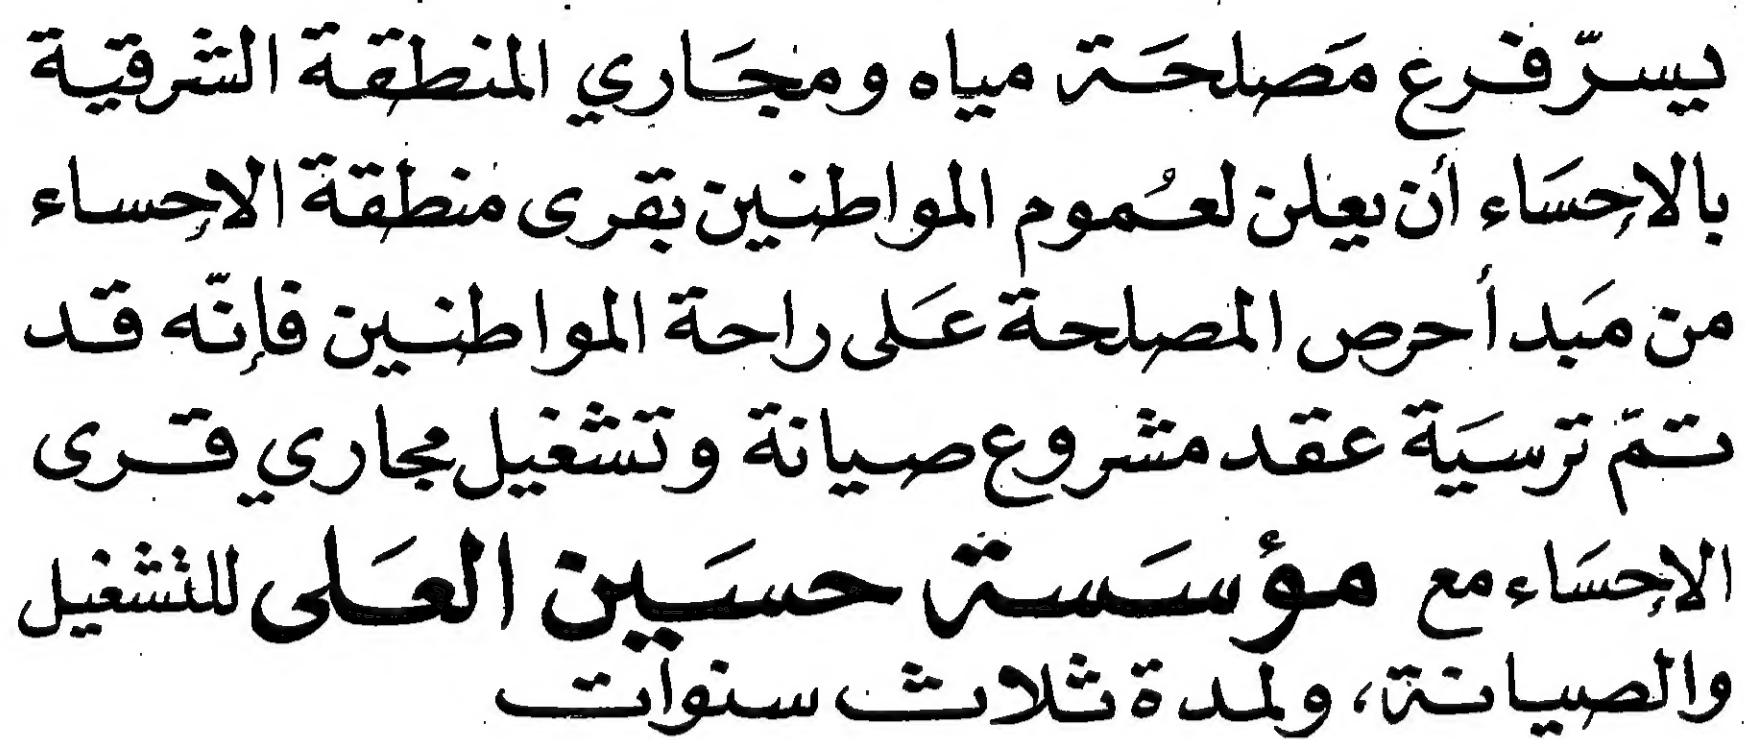 يسرّ فرع مَصلحَة مياه ومجَاري المنطقة الشرقية
بالإحسَاء أن يعلن لعُموم المواطنين بقرى منطقة الإحساء
من مَبدأ حرص المصلحة عَلى راحة المواطنين فإنّه قد
تمّ ترسيَة عقد مشروع صيانة وتشغيل مجاري قرى
الإحسَاء مع مؤسَسة حسَين العَلى للتشغيل
والصيانة، ولمدة ثلاث سنوات